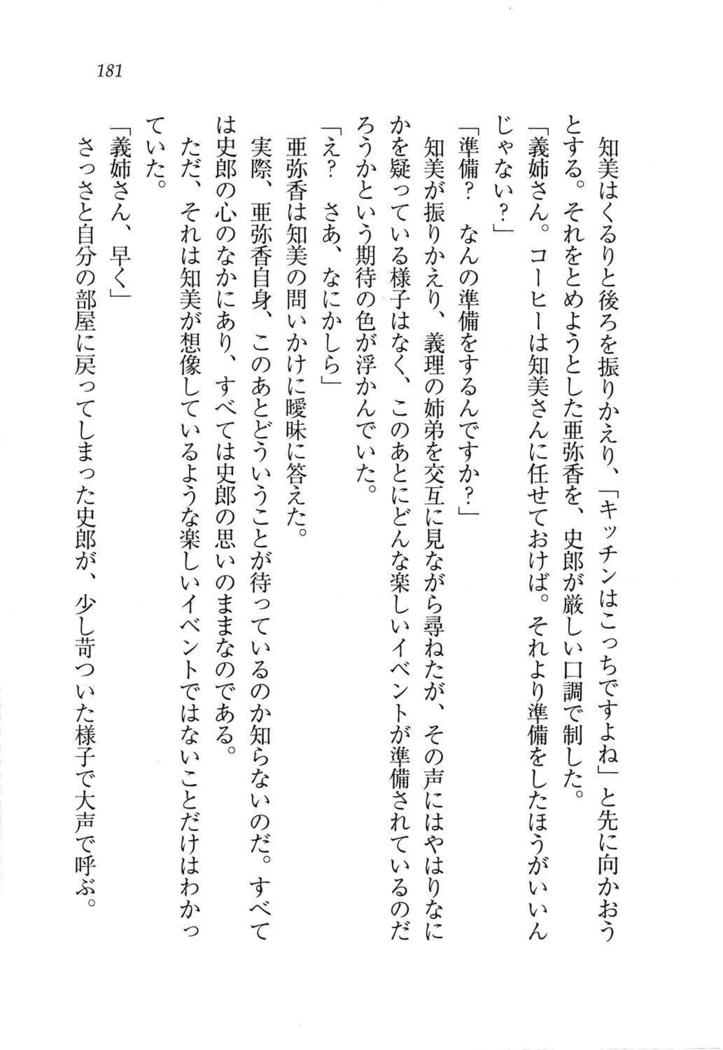 181
知美はくるりと後ろを振りかえり、「キッチンはこっちですよね」と先に向かおう
とする。それをとめようとした亜弥香を、史郎が厳しい口調で制した。
「義姉さん。コーヒーは知美さんに任せておけば。それより準備をしたほうがいいん
じゃない？」
「準備？　なんの準備をするんですか？」
知美が振りかえり、義理の姉弟を交互に見ながら尋ねたが、その声にはやはりなに
かを疑っている様子はなく、このあとにどんな楽しいイベントが準備されているのだ
ろうかという期待の色が浮かんでいた。
「え？　さあ、なにかしら」
亜弥香は知美の問いかけに曖昧に答えた。
実際、亜弥香自身、このあとどういうことが待っているのか知らないのだ。すべて
は史郎の心のなかにあり、すべては史郎の思いのままなのである。
ただ、それは知美が想像しているような楽しいイベントではないことだけはわかっ
ていた。
「義姉さん、早く」
さっさと自分の部屋に戻ってしまった史郎が、少し苛ついた様子で大声で呼ぶ。